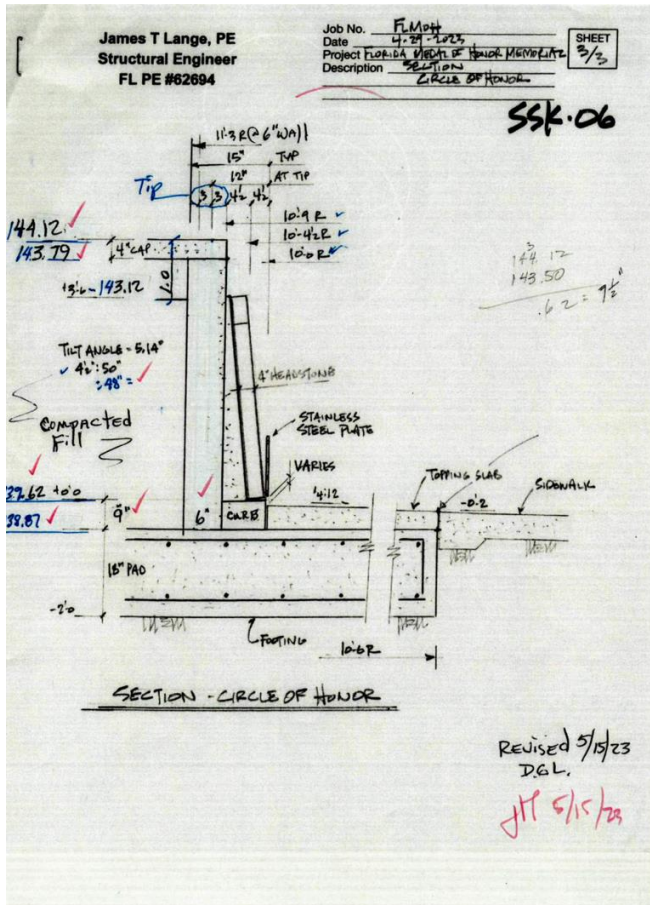 James T Lange, PE
Structural Engineer
FL PE #62694
Job No. FLMOH
Date 4-29-2023
Project FLORIDA MEDAL OF HONOR MEMORIAL
Description SECTION
CIRCLE OF HONOR
SHEET
3/3
SSK-06
15" TYP
12" AT TIP
TIP
3 3 4½ 4½
10'-9 R
10'-4½ R
10'-0 R
144.12
143.79
4" CAP
1'.0
143.12
144.12
143.50
.62 = 9½"
TILT ANGLE - 5.14°
4½":50"
:48" =
4" HEADSTONE
COMPACTED
Fill
STAINLESS
STEEL PLATE
VARIES
39.62 +0'0
38.87
9"
6"
CURB
¼:12
TOPPING SLAB
-0'.2
SIDEWALK
18" PAD
-2'.0
FOOTING
10'-6 R
SECTION - CIRCLE OF HONOR
REVISED 5/15/23
D.G.L.
JM 5/15/23